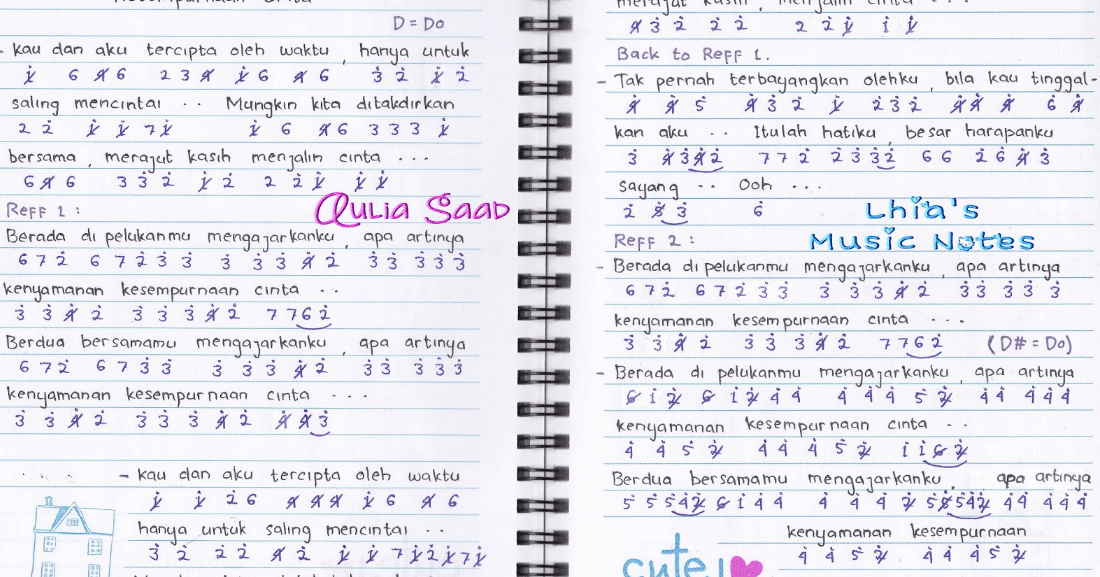 D = Do
- Kau dan aku tercipta oleh waktu, hanya untuk
i̸ 6 4̸ 6 2 3 4̸ i̸ 6 4̸ 6 3̇ 2̇ i̸ 2̇
saling mencintai .. Mungkin kita ditakdirkan
2 2̇ i̸ i̸ 7 i̸ i̸ 6 4̸ 6 3 3 3 i̸
bersama, merajut kasih menjalin cinta ...
6 4̸ 6 3 3̇ 2̇ i̸ 2̇ 2 2̇ i̸ i̸ i̸
Reff 1 :
Aulia Saad
Berada di pelukanmu mengajarkanku, apa artinya
6 7 2̇ 6 7 2̇ 3̇ 3̇ 3̇ 3̇ 3̇ 4̸ 2̇ 3̇ 3̇ 3̇ 3̇ 3̇
kenyamanan kesempurnaan cinta ..
3̇ 3̇ 4̸ 2̇ 3̇ 3̇ 3̇ 4̸ 2̇ 7 7 6 2̇
Berdua bersamamu mengajarkanku, apa artinya
6 7 2̇ 6 7 3̇ 3̇ 3̇ 3̇ 3̇ 4̸ 2̇ 3̇ 3̇ 3̇ 3̇ 3̇
kenyamanan kesempurnaan cinta ...
3̇ 3̇ 4̸ 2̇ 3̇ 3̇ 3̇ 4̸ 2̇ 4̸ 4̸ 3̇
- Kau dan aku tercipta oleh waktu
i̸ i̸ 2̇ 6 4̸ 4̸ 4̸ i̸ 6 4̸ 6
hanya untuk saling mencintai ..
3̇ 2̇ 2̇ 2̇ 4̸ 2̇ i̸ i̸ 7 i̸ 2̇ i̸ 7 i̸
merajut kasih, menjalin cinta ...
4̸ 3̇ 2̇ 2̇ 2̇ 2̇ 2̇ i̸ i i̸
Back to Reff 1.
- Tak pernah terbayangkan olehku, bila kau tinggal-
4̸ 4̸ 5 4̸ 3̇ 2̇ i̸ 2̇ 3̇ 2̇ 4̸ 4̸ 4̸ 6 4̸
kan aku .. Itulah hatiku, besar harapanku
3̇ 4̸ 3̇ 4̸ 2̇ 7 7 2̇ 2̇ 3̇ 3̇ 2̇ 6 6 2̇ 6 4̸ 3̇
sayang .. Ooh ...
2̇ 5̸ 3̇ 6
Lhia's
Music Notes
Reff 2 :
- Berada di pelukanmu mengajarkanku, apa artinya
6 7 2̇ 6 7 2̇ 3̇ 3̇ 3̇ 3̇ 3̇ 4̸ 2̇ 3̇ 3̇ 3̇ 3̇ 3̇
kenyamanan kesempurnaan cinta ...
3̇ 3̇ 4̸ 2̇ 3̇ 3̇ 3̇ 4̸ 2̇ 7 7 6 2̇ (D# = Do)
- Berada di pelukanmu mengajarkanku, apa artinya
6̸ i 2̸ 6̸ i 2̸ 4̇ 4̇ 4̇ 4̇ 4̇ 5̇ 2̸ 4̇ 4̇ 4̇ 4̇ 4̇
kenyamanan kesempurnaan cinta ..
4̇ 4̇ 5̇ 2̸ 4̇ 4̇ 4̇ 5̇ 2̸ i i 6̸ 2̸
Berdua bersamamu mengajarkanku, apa artinya
5̇ 5̇ 5̇ 4̇ 2̸ 6̸ i 4̇ 4̇ 4̇ 4̇ 4̇ 2̸ 5̇ 5̸ 5̇ 4̇ 2̸ 4̇ 4̇ 4̇ 4̇ 4̇
kenyamanan kesempurnaan
4̇ 4̇ 5̇ 2̸ 4̇ 4̇ 4̇ 5̇ 2̸
cute!